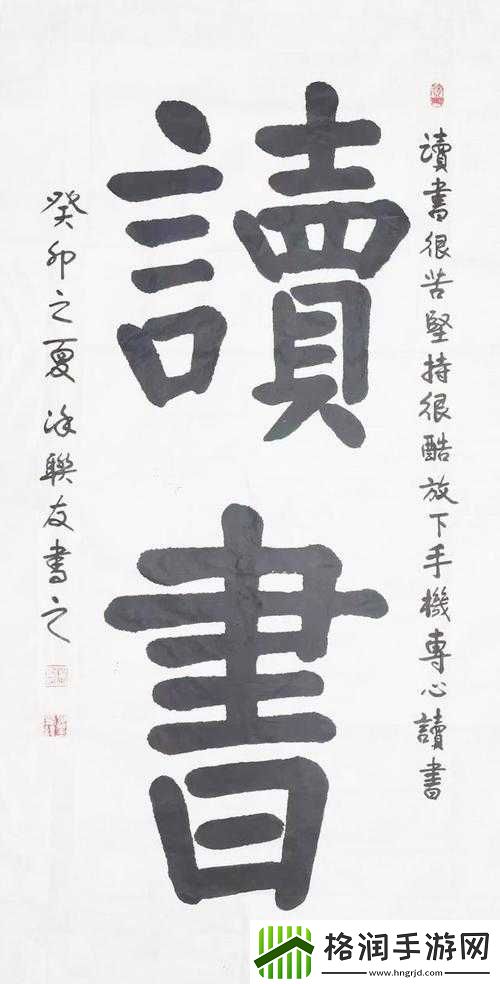 讀書
讀書很苦堅持很酷放下手機專心讀書
癸卯之夏涂聯友書之
格润手游网
www.hngrjd.com